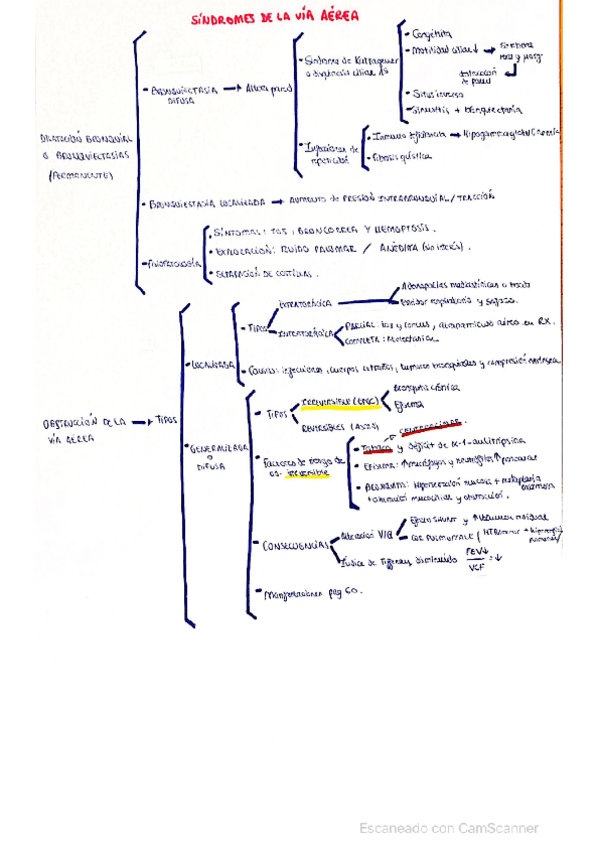 SÍNDROMES DE LA VÍA AÉREA
DILATACIÓN BRONQUIAL
O BRONQUIECTASIAS
(PERMANENTE)
- BRONQUIECTASIA → Altera pared
DIFUSA
- Síndrome de Kartagener
o disquinesia ciliar
- Congénita
- Motilidad ciliar ↓ →
destrucción
de pared
- Situs inverso
- Sinusitis +
- Infecciones de
repetición
- Inmunodeficiencia → Hipogammaglobulinemia
- Fibrosis quística
- BRONQUIECTASIA LOCALIZADA → AUMENTO DE PRESIÓN INTRABRONQUIAL / TRACCIÓN
- FISIOPATOLOGÍA
- SÍNTOMAS: TOS, BRONCORREA Y HEMOPTISIS.
- EXPLORACIÓN: RUIDO PULMONAR /
- SEPARACIÓN DE COSTILLAS.
OBSTRUCCIÓN DE LA → TIPOS
VÍA AÉREA
- LOCALIZADA
- TIPOS
EXTRATORÁCICA
Adenopatías mediastínicas o
Estridor respiratorio y
INTRATORÁCICA
PARCIAL: tos y cornus, aéreo en RX.
COMPLETA: Atelectasia.
- Causas: infecciones, cuerpos extraños, tumores bronquiales y compresión
- GENERALIZADA
O
DIFUSA
- TIPOS
IRREVERSIBLE (EPOC)
Bronquitis crónica
Efisema
REVERSIBLES (ASMA)
- Factores de riesgo de
irreversible
- Tabaco y déficit de α-1-antitripsina
- Efisema: ↑ macrófagos y neutrófilos ↑
- BRONQUITIS: Hipersecreción mucosa + metaplasia
+ mucociliar y obstrucción.
- CONSECUENCIAS
Alteración V/Q
Efecto SHUNT y ↑ Volumen residual
COR PULMONALE
Índice de Tiffenau disminuido FEV↓
VCF = ↓
- Manifestaciones pag 60.
Escaneado con CamScanner